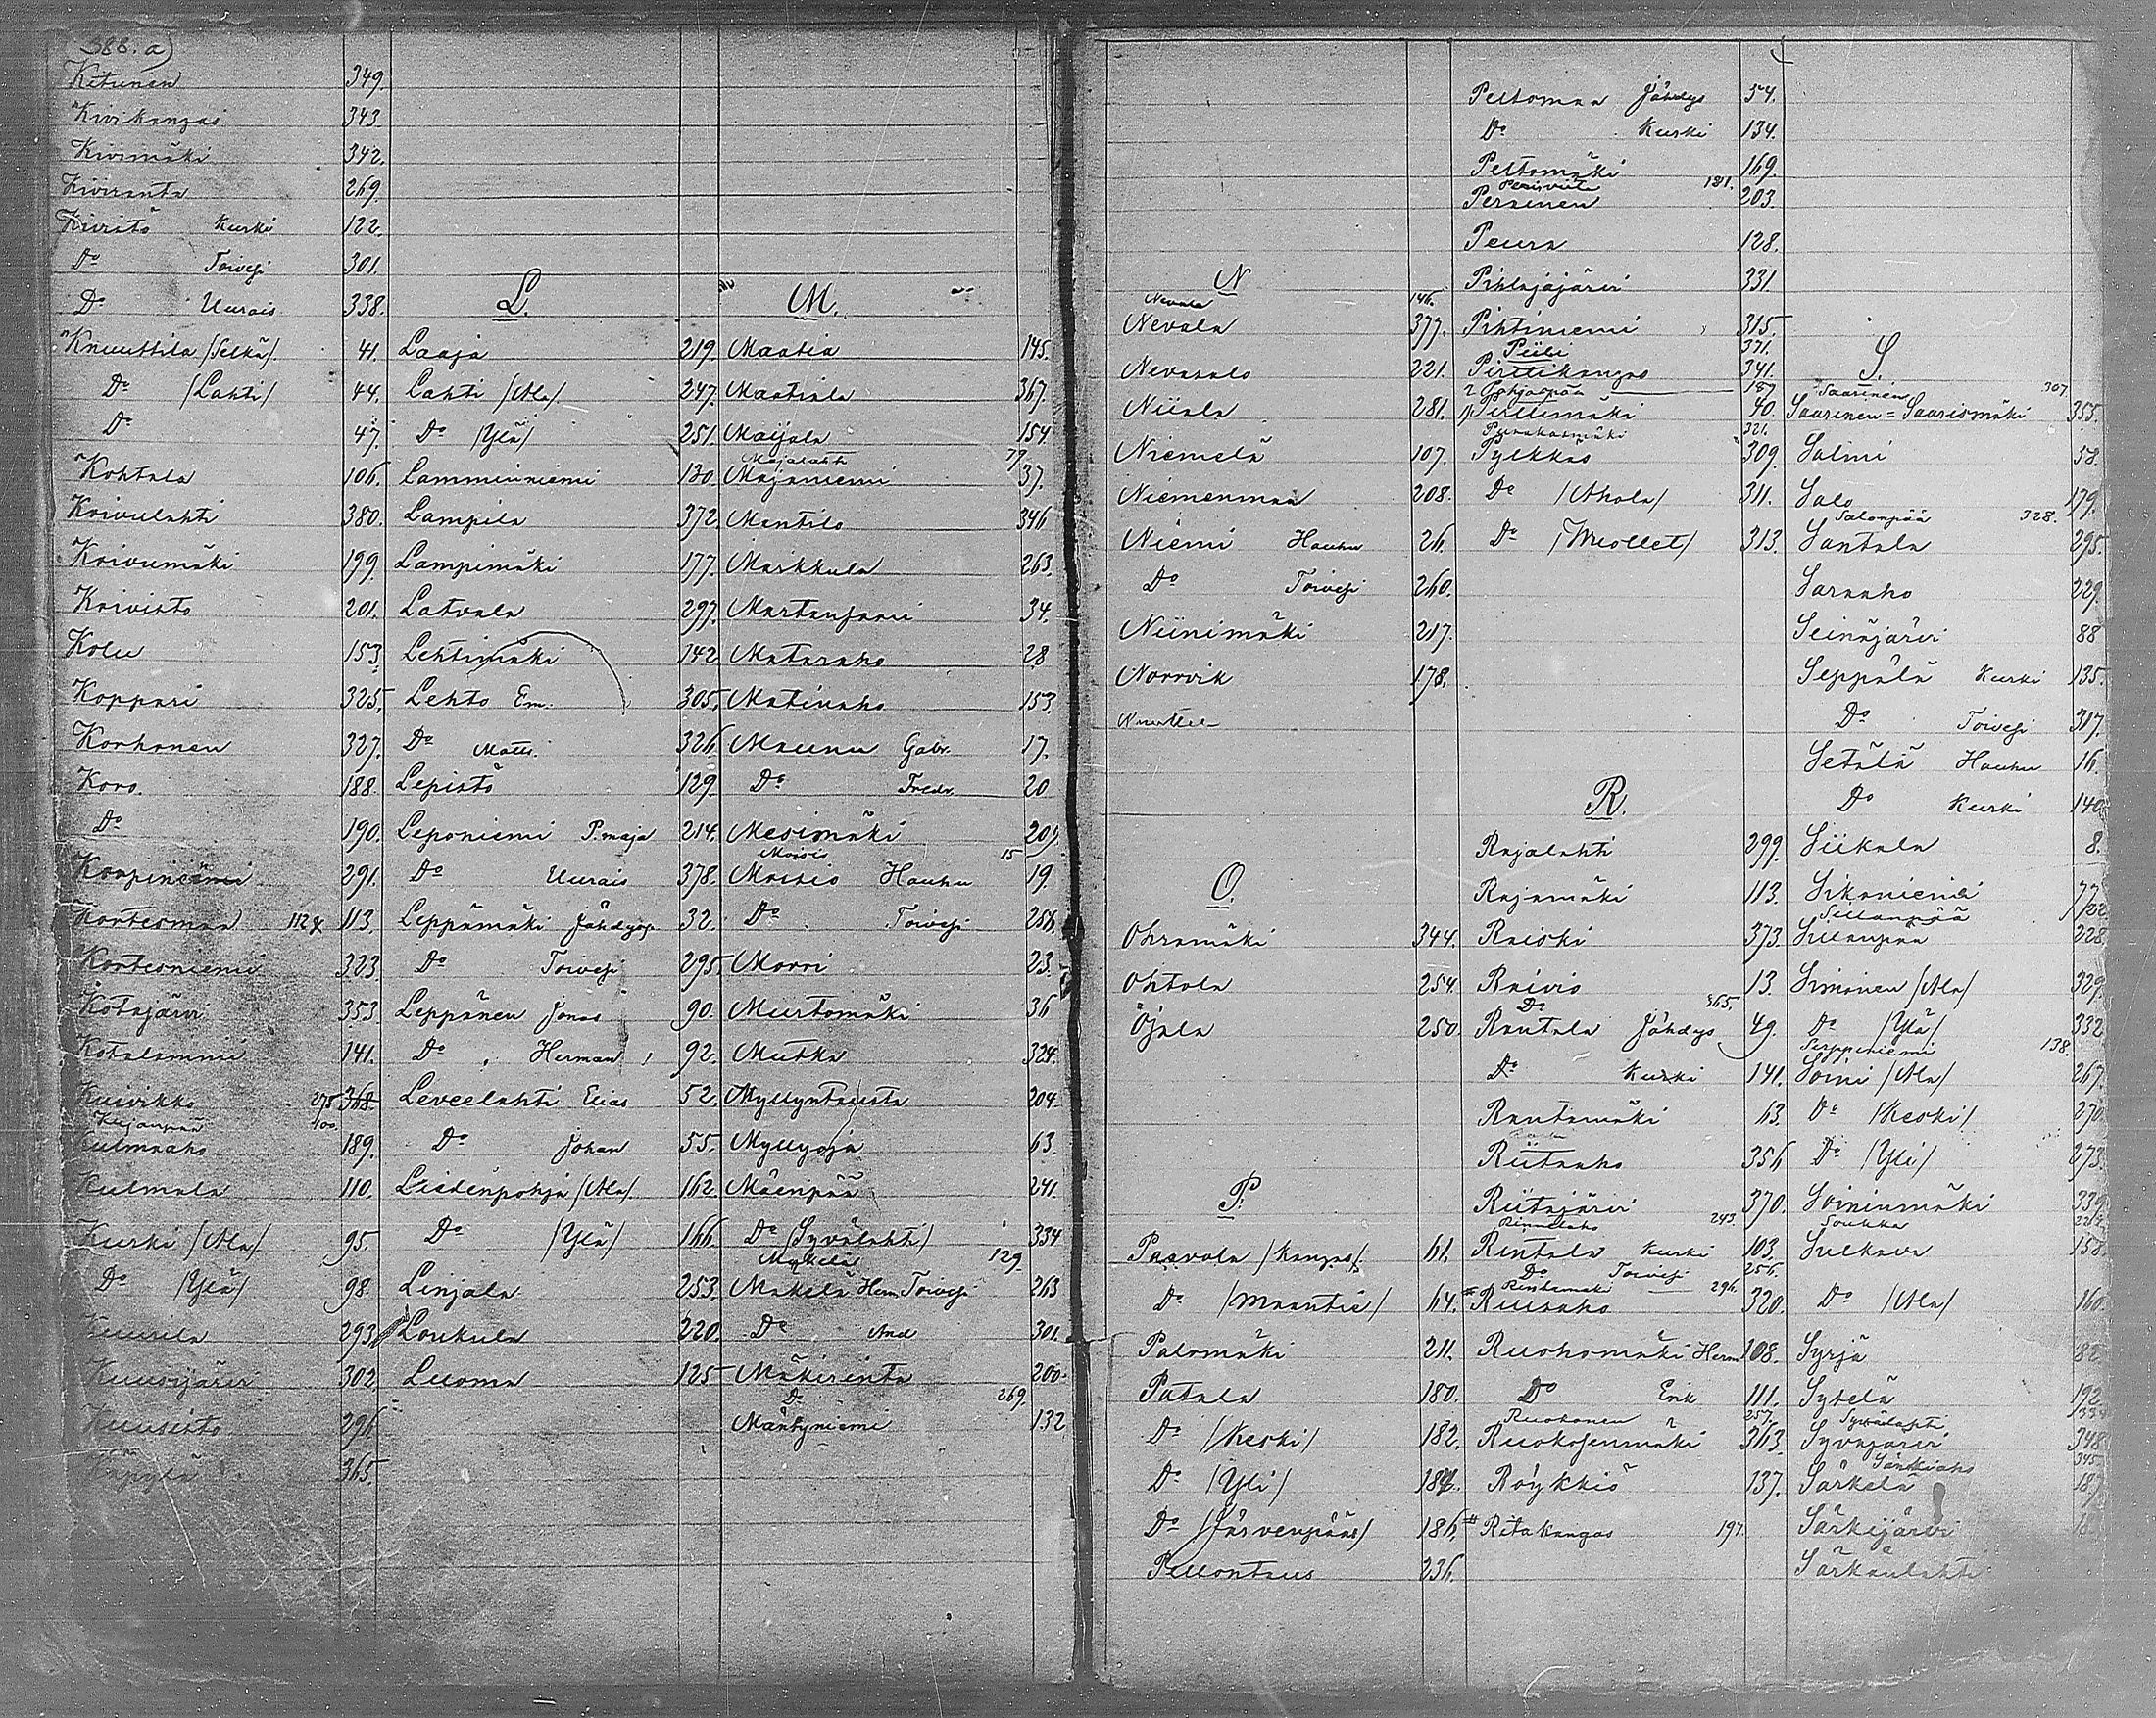 388. a)
Ketunen 349.
Kivikangas 343.
Kivimäki 342.
Kiviranta 269.
Kivistö Kurki 122.
Do Toivesi 301.
Do Uurais 338.
Knuuttila /Selkä/. 41.
Do /Lahti/ 44.
Do 47.
Kohtala 106.
Koivulahti 380.
Koivumäki 199.
Koivisto 201.
Kolu 153.
Koppari 325.
Korhonen 327.
Koro. 188.
Do 190.
Korpiniemi 291.
Kortesmaa 112 113.
Kortesniemi 323.
Kotajärvi 353.
Kotalammi 141.
Kuivikko 275 368.
Kujanpää 100.
Kulmaaho 189.
Kulmala 110.
Kurki /Ala/. 95.
Do /Ylä/ 98.
Kuusela 293.
Kuusijärvi 302
Kuusisto 296.
Käpylä 365.
L.
Laaja 219.
Lahti /Ala/. 247.
Do /Ylä/ 251.
Lamminniemi 180.
Lampila 372.
Lampimäki 177.
Latvala 297.
Lehtimäki 142
Lehto Em. 305.
Do Matts. 326.
Lepistö 129.
Leponiemi P.maja 214.
Do Uurais 378.
Leppämäki Jähdysp. 32.
Do Toivesi 295.
Leppänen Jonas 90.
Do Herman 92.
Leveelahti Elias 52.
Do Johan 55.
Liedenpohja /Ala/. 162.
Do /Ylä/ 166.
Linjala 253.
Loukula 220.
Luoma 125
M.
Maatia 145.
Maatiala 367.
Maijala 154.
Majalahti 79.
Majaniemi 37.
Mantila 346
Markkula 263.
Martansaari 34.
Mataraho 28
Matinaho 153.
Maunu Gabr. 17.
Do Fredr. 20
Mesimäki 209.
Moisio 15
Moisio Hauhu 19.
Do Toivesi 256.
Morri 23.
Murtomäki 36
Mutka 324.
Myllyntausta 204.
Myllyoja 63.
Mäenpää 241.
Do /Syvälahti/ 334
Mäkelä 129.
Mäkelä Herm. Toivesi 263
Do And 301.
Mäkirinta 200.
Do 269.
Mäntyniemi 132
N
Nevala 146.
Nevala 377.
Nevasalo 221.
Niiala 281.
Niemelä 107.
Niemenmaa 208.
Niemi Hauhu 26.
Do Toivesi 260.
Niinimäki 217.
Norrvik 178.
O.
Ohramäki 344.
Ohtola 254.
Ojala 250.
P.
Paavola /Kangas/. 61.
Do /Maantie/ 64.
Palomäki 211.
Patala 180.
Do /Keski/ 182.
Do /Yli/ 184.
Do /Järvenpää/ 186.
Pellontaus 236.
Peltomaa Jähdys 54.
Do Kurki 134.
Peltomäki 169.
Pensviita 181.
Persinen 203.
Peura 128.
Pihlajajärvi 331.
Pihtiniemi 315.
Piili 371.
Pirttikangas 341.
Pohjaspää 189
Pirttimäki 40.
Purakasmäki 321.
Pylkkäs 309.
Do /Ahola/ 311.
Do /Wuollet/ 313.
R.
Rajalahti 299.
Rajamäki 113.
Raiski 373.
Raivio 13.
Do 365.
Rautala Jähdys 49.
Do Kurki 141.
Rautamäki 63.
Riitaaho 356
Riitajärvi 370.
Rinneaho 243.
Rintala Kurki 103.
Do Toivesi 256.
Rintamäki 296.
Ruusaho 320.
Ruohomäki Herm 108.
Do Erik 111.
Ruokonen 257.
Ruokosenmäki 363.
Röykkiö 137.
Ritakangas 197.
S.
Saarinen 307.
Saarinen = Saarismäki 355.
Salmi 58.
Salo 179.
Salonpää 328.
Santala 295.
Saraaho 229.
Seinäjärvi 88
Seppälä Kurki 135.
Do Toivesi 317.
Setälä Hauhu 16.
Do Kurki 140.
Siikala 8.
Sikaniemi 77
Sillanpää 122
Sillanpää 228.
Simonen /Ala/ 329.
Do /Ylä/ 332.
Serppiniemi 138.
Soini /Ala/ 267.
Do /Keski/ 270
Do /Yli/ 273.
Soininmäki 339.
Soukka
Sulkava 158.
Do /Ala/ 160.
Syrjä 82.
Sytelä 192.
Syvälahti 334
Syväjärvi 348
Sänkiaho 345
Särkelä 187.
Särkijärvi
Särkänlahti